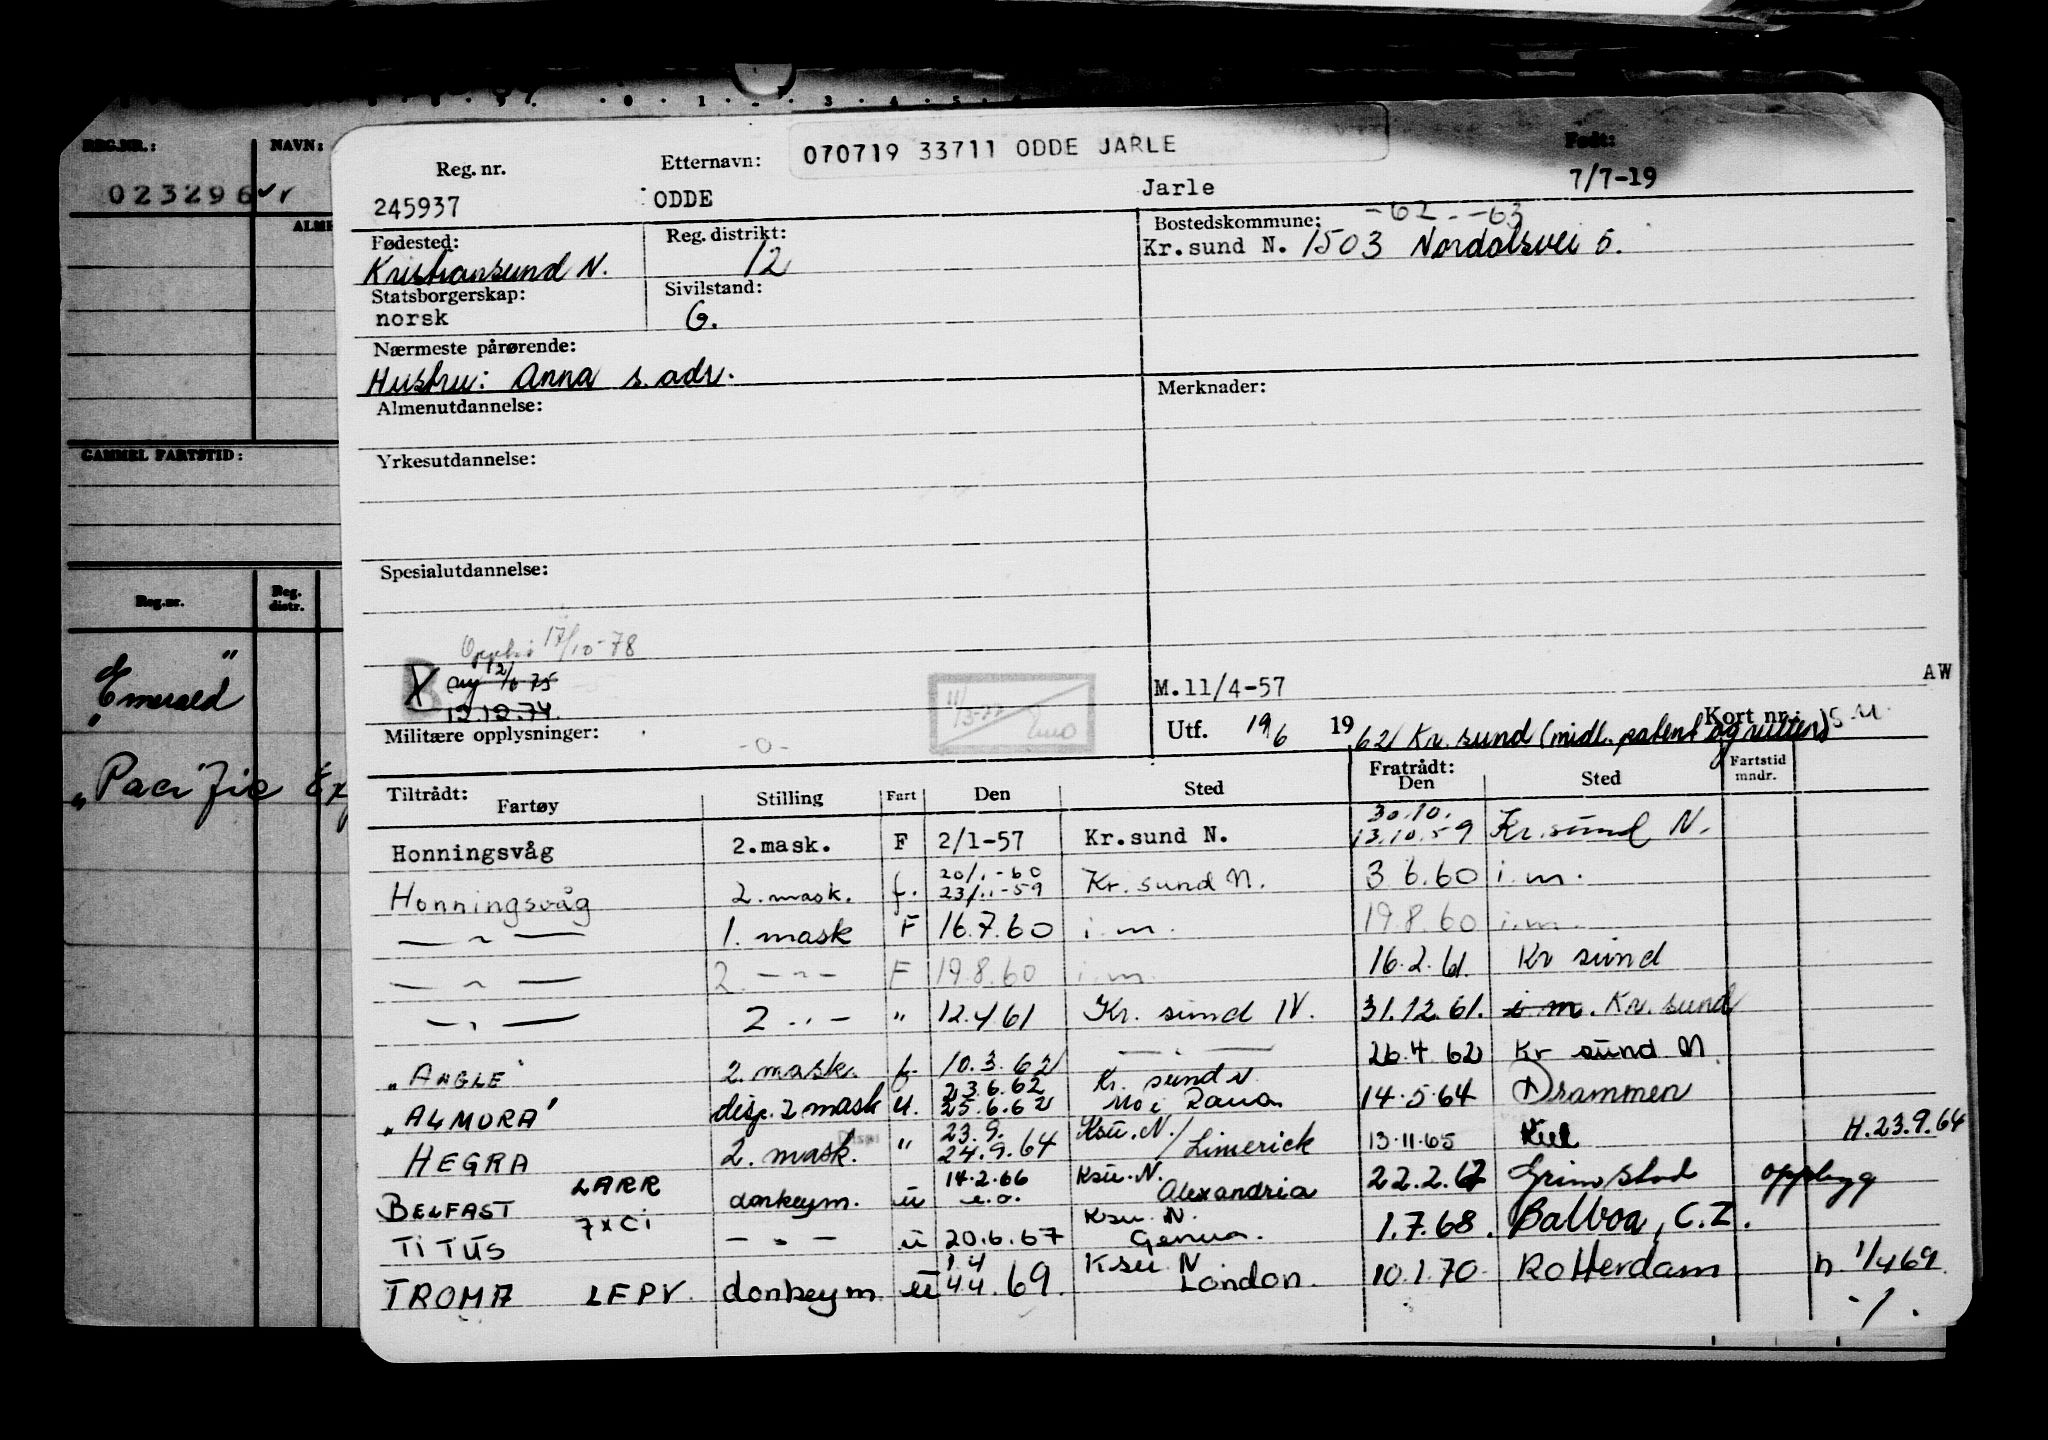 REG.NR.:
NAVN:
023296
GAMMEL FARTSTID:
Reg.nr.
Reg. distr.
"Emerald"
"Pacific Ex
070719 33711 ODDE JARLE
Reg. nr.
Etternavn:
Født:
245937
ODDE
Jarle
7/7-19
Fødested:
Reg. distrikt:
Bostedskommune: -62 - -63
Kristiansund N.
12
Kr.sund N. 1503 Nordalsvei 5.
Statsborgerskap:
Sivilstand:
norsk
G.
Nærmeste pårørende:
Hustru: Anna s. adr.
Almenutdannelse:
Merknader:
Yrkesutdannelse:
Spesialutdannelse:
17/10-78
X B 12/6 75
12.12.74.
M.11/4-57
AW
Militære opplysninger:
-0-
Utf. 19/6 1962 Kr.sund (midl. patent og rulleri)
Kort nr.:
Tiltrådt:
Fartøy
Stilling
Fart
Den
Sted
Fratrådt:
Den
Sted
Fartstid mndr.
Honningsvåg 2.mask. F 2/1-57 Kr.sund N. 30.10. 13.10.59 Kr.sund N.
Honningsvåg 2. mask. f. 20/1-60 23/11-59 Kr. sund N. 3 6.60 i.m.
— " — 1. mask F 16.7.60 i.m. 19.8.60 i.m.
— " — 2. — " — F 19.8.60 i.m. 16.2.61. Kr sund
— " — 2 — " — " 12.4.61 Kr. sund N. 31.12.61. i m. Kr. sund
"ANGLE" 2. mask. f. 10.3.62 — " — 26.4.62 Kr sund N.
"ALMORA" disp. 2 mask u. 23.6.62 25.6.62 Kr. sund N Mo i Rana 14.5.64 Drammen
HEGRA 2. mask. Disp " 23.9. 24.9.64 Ksu.N./ Limerick 13.11.65 Kiel H.23.9.64
BELFAST LARR donkeym. u 14.2.66 e.o. Ksu.N. Alexandria 22.2.67 Grimstad opphygg
TITUS 7xCi — " — u 20.6.67 Ksu. N. Genua. 1.7.68. Balboa, C.Z.
TROMA LEPV. donkeym u 1.4 4.4.69. Ksu N London. 10.1.70. Rotterdam h 1/4 69
-/.